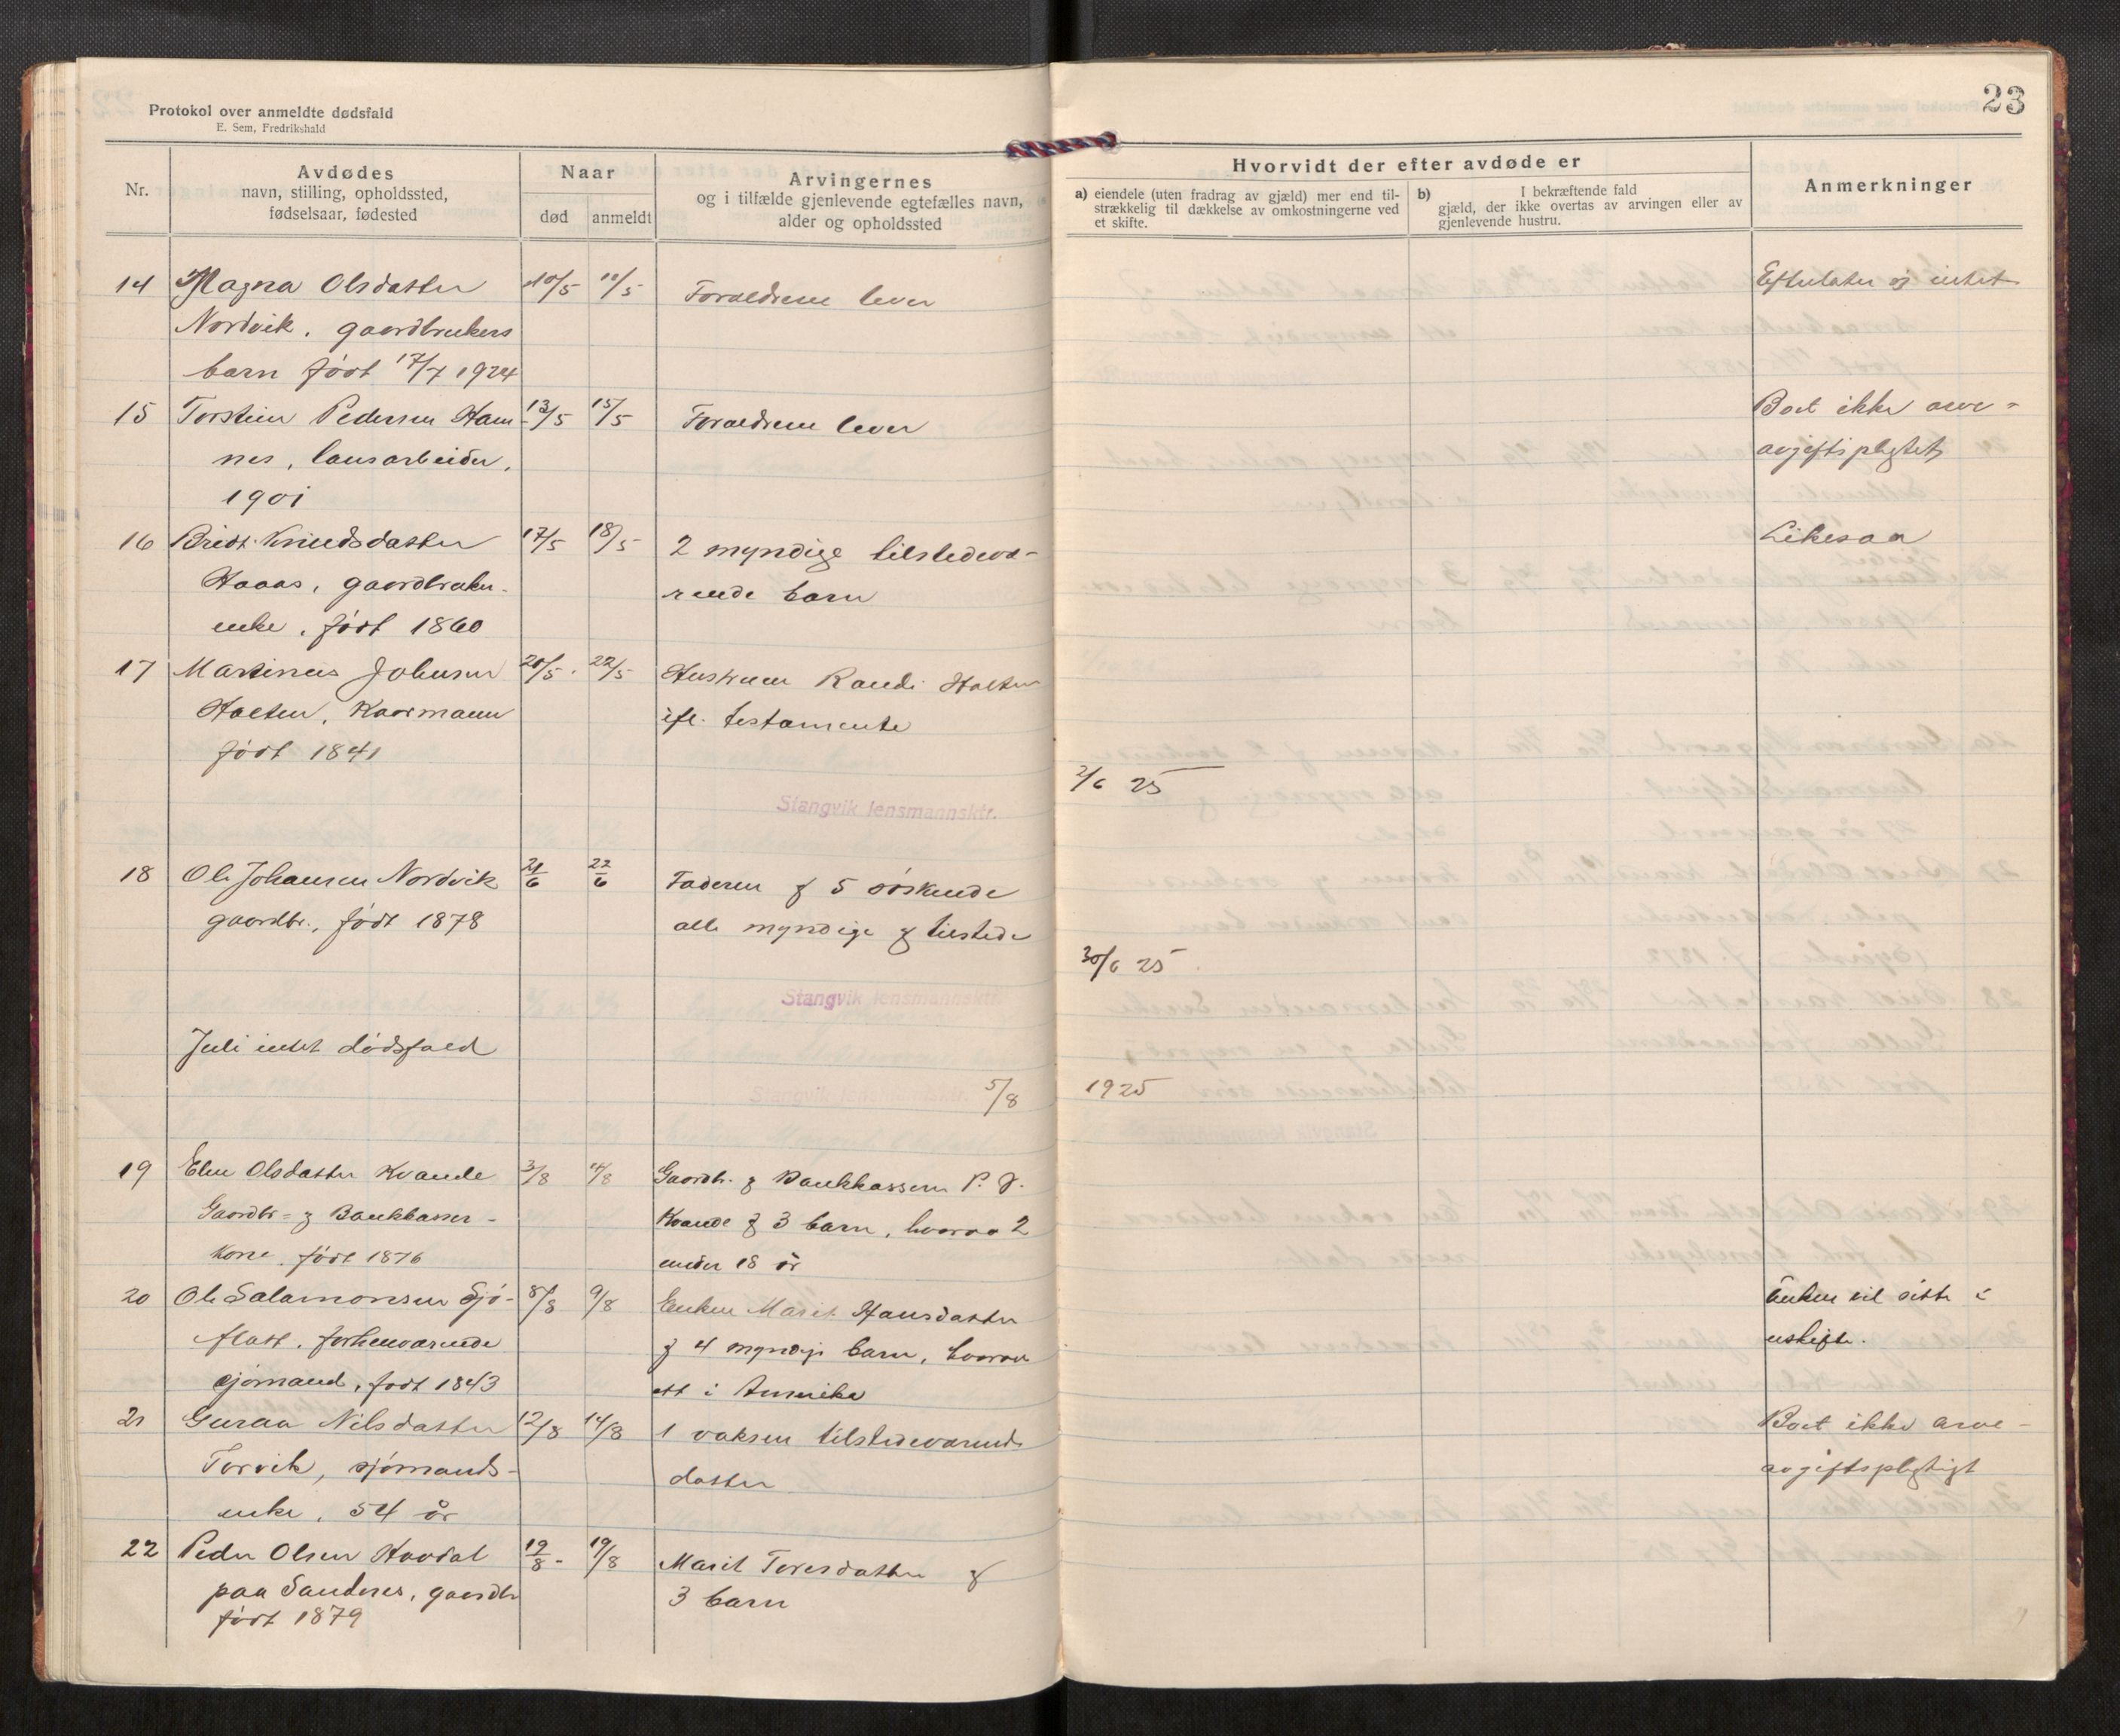 23
Protokol over anmeldte dødsfald
E. Sem, Fredrikshald
Nr.
Avdødes
navn, stilling, opholdssted,
fødselsaar, fødested
Naar
død
anmeldt
Arvingernes
og i tilfælde gjenlevende egtefælles navn,
alder og opholdssted
Hvorvidt der efter avdøde er
a) eiendele (uten fradrag av gjæld) mer end til-
strækkelig til dækkelse av omkostningerne ved
et skifte.
b) I bekræftende fald
gjæld, der ikke overtas av arvingen eller av
gjenlevende hustru.
Anmerkninger
14 Magna Olsdatter 10/5 11/5 Foraeldrene lever Efterlater sig intet
Nordvik. gaardbrukers
barn født 17/7 1924
15 Torstein Pedersen Ham- 13/5 15/5 Foraeldrene lever Boet ikke arve-
nes, lausarbeider, avgiftspligtet
1901
16 Bredt Knudsdatter 17/5 18/5 2 myndige tilstedevæ- Likesaa
Haaas, gaardbruker- rende barn
enke, født 1860
17 Martinus Johnsen 20/5 22/5 Hustruen Randi Halten
Halten, Kaarmann ifl. testamente
født 1841
2/6 25
Stangvik lensmannsktr.
18 Ole Johansen Nordvik 21/6 22/6 Faderen og 5 søskende
gaardbr., født 1878 alle myndige og tilstede
30/6 25
Stangvik lensmannsktr.
Juli intet dødsfald
Stangvik lensmannsktr. 5/8 1925
19 Elen Olsdatter Kvande 3/8 4/8 Gaardb. og Bankkasserer P. J.
Gaardbr- og Bankkasser- Kvande og 3 barn, hvorav 2
kone, født 1876 under 18 år
20 Ole Salamonsen Sjø- 8/8 9/8 Enken Marit Hansdatter Enken vil sitte i
flatt. forhenværende og 4 myndige barn, hvorav uskifte.
sjømand, født 1843 ett i Amerika
21 Guraa Nilsdatter 12/8 14/8 1 voksen tilstedeværende Boet ikke arve-
Torvik, sjømands- datter avgiftspligtigt
enke, 54 år
22 Peder Olsen Hovdal 19/8 19/8 Marit Toresdatter og
paa Sandnes, gaardbr 3 barn
født 1879